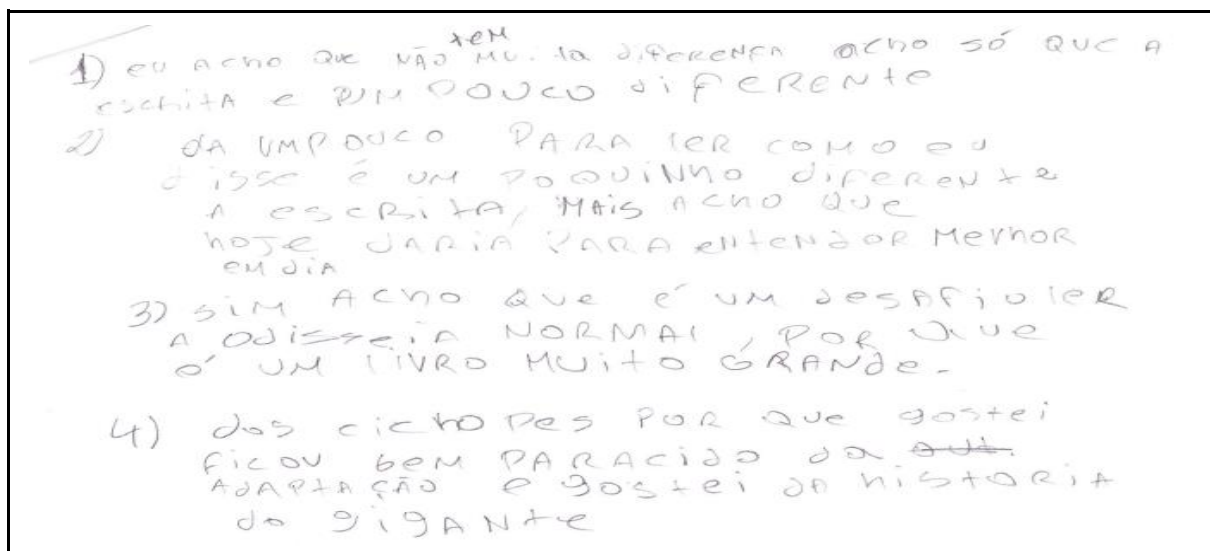 1) eu Acho que NÃO tem MUita diferença acho só que A
escrita e UM POUCO diFERENte
2) dA UMPOUCO PARA ler como eu
disse é um POQUiNho diferente
A escRitA, MAis Acho que
hoje dARiA PARA entender Melhor
em diA
3) SiM Acho que é um desafio ler
A OdisseiA NORMAl, POR que
é UM liVRO MUito GRANde.
4) dos ciclopes POR que gostei
ficou bem PARAcido da
AdAPtAçÃO e gostei dA histORiA
do gigANte